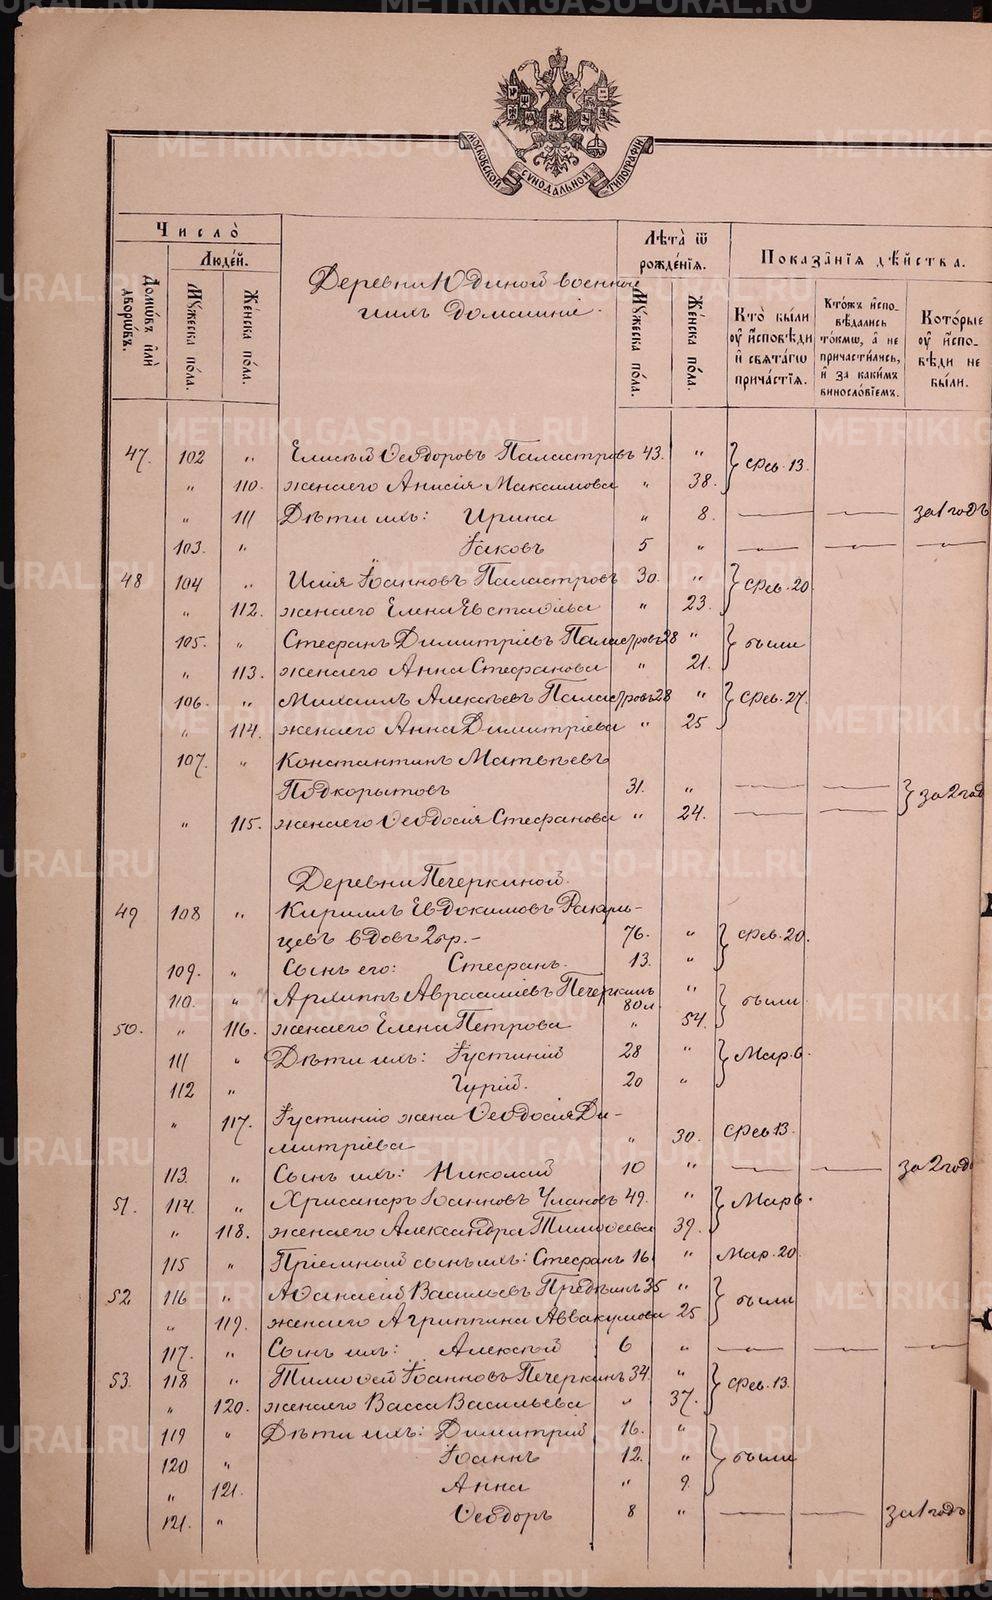 METRIKI.GASO-URAL.RU
МОСКОВСКОЙ СѴНОДАЛЬНОЙ ТИПОГРАФІИ
Число̀
Людей.
Домѡвъ и҆лѝ дворѡвъ.
Мꙋжеска пола.
Же́нска по́ла.
Деревни Юдиной военно
гихъ домашніе.
Лѣта̀ ѿ рожде́нїѧ.
Мꙋжеска по́ла.
Же́нска по́ла.
Показа̑нїѧ дѣ́йства.
Кто̀ бы́ли оу҆ и҆сповѣди и҆ свѧта́гѡ причастїѧ.
Кто́жъ и҆спо-вѣдались то́кмѡ, а҆ не причасти́лись, и҆ за каки́мъ винослoвїемъ.
Кото́рые оу҆ и҆спо-вѣди не бы́ли.
47. 102 " Елисѣй Ѳеодоровъ Паластровъ 43. " Фев. 13.
" 110. жена его Анисія Максимова " 38.
" 111 Дѣти ихъ: Ирина " 8. — — за 1 годъ
103. " Іаковъ 5 " — — —
48 104 " Илія Іоанновъ Паластровъ 30. " Фев. 20.
" 112. жена его Елена Евстафіева " 23.
105. " Стефанъ Димитріевъ Паластровъ 28 " были
" 113. жена его Анна Стефанова " 21.
106. " Михаилъ Алексѣевъ Паластровъ 28 " Фев. 27.
" 114. жена его Анна Димитріева " 25
107. " Константинъ Матвѣевъ
Подкорытовъ 31. " — — за 2 год
" 115. жена его Ѳеодосія Стефанова " 24. — —
Деревни Печеркиной.
49 108 " Кириллъ Евдокимовъ Ракри-
цевъ вдов 2 бр.- 76. " Фев. 20.
109. " Сынъ его: Стефанъ. 13. "
110. " Архипъ Авраамiевъ Печеркинъ 80 л. " были
50. " 116. жена его Елена Петрова " 54.
111 " Дѣти ихъ: Іустиній 28 " Мар. 6.
112 " Гурій. 20 "
" 117. Іустинію жена Ѳеодосія Ди-
митріева " 30. Фев 13.
113. " Сынъ ихъ: Николай 10 " — — за 2 годъ
51. 114. " Хрисанфъ Іоанновъ Улановъ 49. " Мар 6.
" 118. жена его Александра Тимоѳеева 39.
115 " Пріемный сынъ ихъ: Стефанъ 16. " Мар. 20
52 116 " Аѳанасій Васильевъ Предѣинъ 35 " были
" 119. жена его Агриппина Аввакумова 25
117. " Сынъ ихъ: Алексѣй 6 " — — —
53. 118 " Тимоѳей Іоанновъ Печеркинъ 34. " Фев. 13.
" 120. жена его Васса Васильева " 37.
119 " Дѣти ихъ: Димитрій 16. " были
120 " Іоаннъ 12. "
" 121. Анна " 9.
121. " Ѳеодоръ 8 " — — за 1 годъ